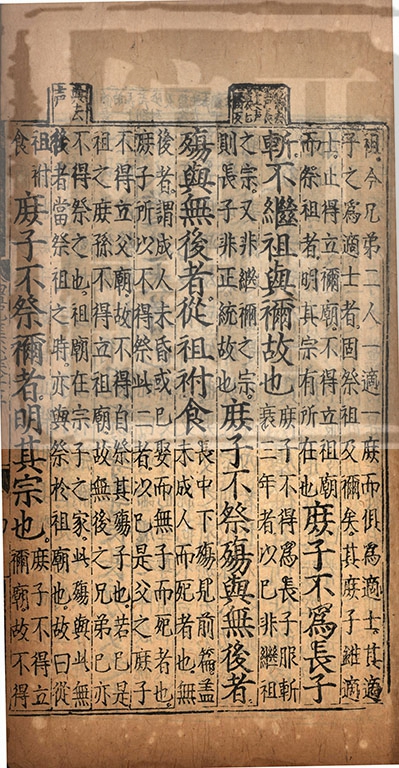 祖。今兄弟二人一適一庶而俱爲適士。其適
子之爲適士者。固祭祖及禰矣。其庶子雖適
士。止得立禰廟。不得立祖廟
而祭祖者。明其宗有所在也
庶子不爲長子
斬不繼祖與禰故也
庶子不得爲長子服斬
衰三年者以已非繼祖
之宗。又非繼禰之宗。
則長子非正統故也。
庶子不祭殤與無後者
殤與無後者從祖祔食
長中下殤見前篇蓋
未成人而死者也。無
後者。謂成人未昏或已娶而無子而死者也。
庶子所以不得祭此二者。以已是父之庶子
不得立父廟。故不得自祭其殤子也。若已是
祖之庶孫不得立祖廟。故無後之兄弟。已亦
不得祭之也。祖廟在宗子之家。此殤與此無
後者當祭祖之時。亦與祭於祖廟也。故曰從
祖祔
食
庶子不祭禰者。明其宗也。
庶子不得立
禰廟。故不得